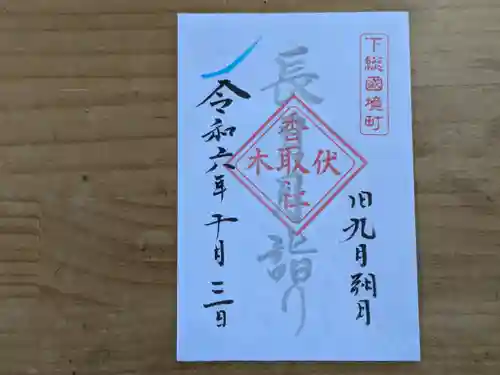 下総國境町
旧九月朔日
長月詣り
伏木
香取社
令和六年十月三日